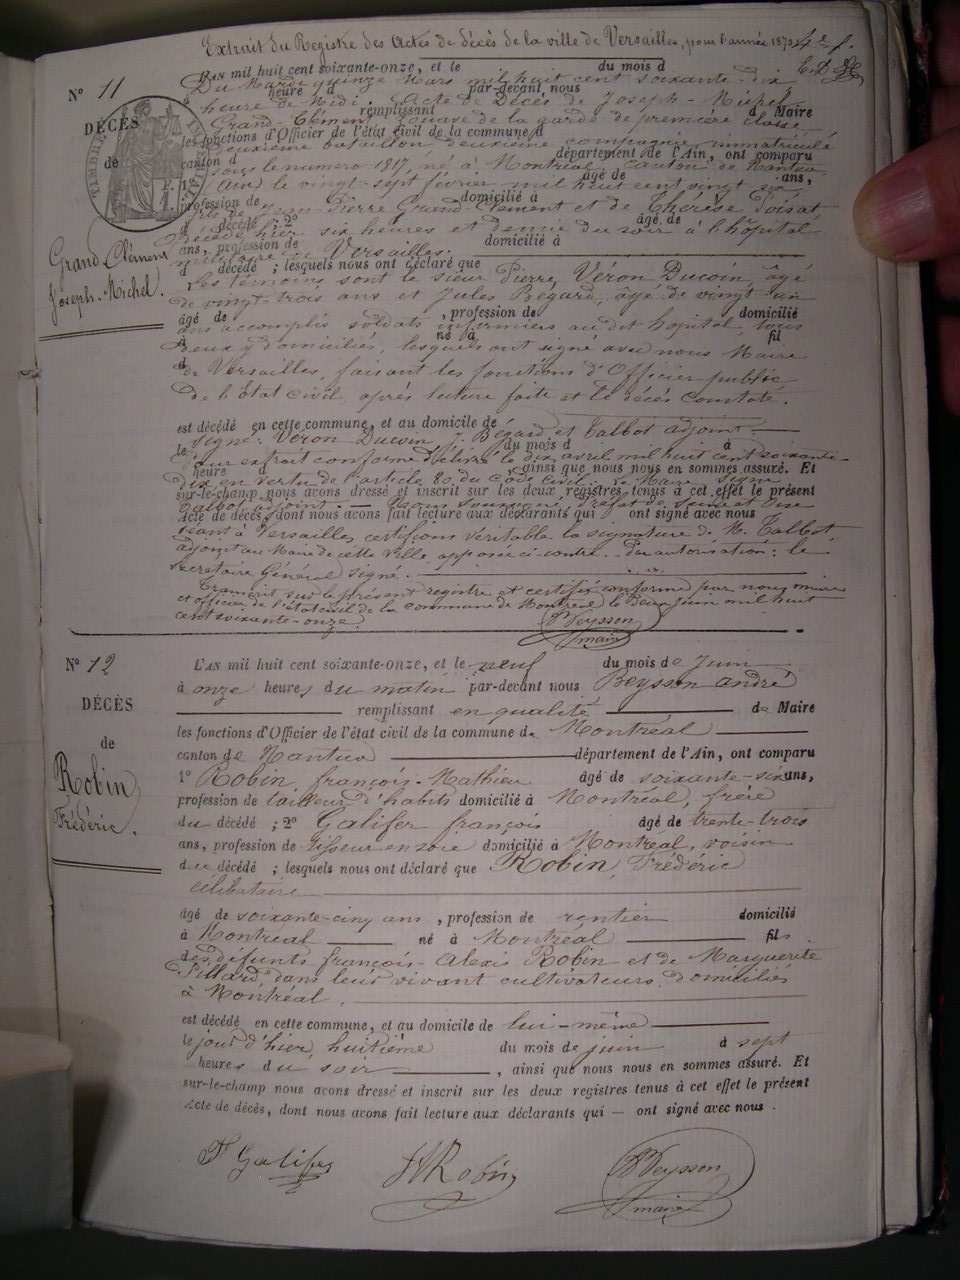 Extrait du Registre des Actes de décès de la ville de Versailles, pour l'année 187
N° 11
L'AN mil huit cent soixante-onze, et le du mois d
Du Mardi quinze Mars mil huit cent soixante-dix
heure d par-devant nous
heure de Midi. Acte de Décès de Joseph-Michel
DÉCÈS
remplissant d Maire
Grand-Clément, zouave de la garde de première classe
les fonctions d'Officier de l'état civil de la commune d
deuxième bataillon, deuxième compagnie immatriculé
de
canton d département de l'Ain, ont comparu
sous le numéro 1817, né à Montréal, canton de Nantua
1° âgé de ans,
(Ain) le vingt-sept février mil huit cent vingt
profession de domicilié à
fils de Pierre Grand-Clément et de Thérèse
d décédé ; 2° âgé de
Décédé hier six heures et demie du soir à l'hôpital
ans, profession de domicilié à
militaire de Versailles.
Grand Clément
Joseph-Michel.
d décédé ; lesquels nous ont déclaré que
Les témoins sont le sieur Pierre Véron Ducoin, âgé
de vingt-trois ans et Jules Bégard, âgé de vingt-un
âgé de , profession de domicilié
ans accomplis soldats infirmiers au dit hôpital tous
à né à fil
deux y domiciliés, lesquels ont signé avec nous Maire
d
de Versailles, faisant les fonctions d'Officier public
de l'État Civil, après lecture faite et le décès constaté.
est décédé en cette commune, et au domicile de
Signé : Véron Ducoin, J. Bégard et Talbot adjoint
le du mois d à
Pour extrait conforme délivré le dix avril mil huit cent soixante-
heure d , ainsi que nous nous en sommes assuré. Et
dix en vertu de l'article 80 du Code Civil. Le Maire signé
sur-le-champ nous avons dressé et inscrit sur les deux registres tenus à cet effet le présent
Talbot adjoint. Nous Préfet de Seine et Oise
Acte de décès, dont nous avons fait lecture aux déclarants qui ont signé avec nous
séant à Versailles certifions véritable la signature de M. Talbot
adjoint au Maire de cette ville apposée ci contre. Par autorisation : le
secrétaire Général signé.
Transcrit sur le présent registre et certifié conforme par nous maire
et officier de l'état civil de la commune de Montréal le Deux juin mil huit
cent soixante-onze.
Beysson
maire
N° 12
L'AN mil huit cent soixante-onze, et le neuf du mois de Juin
à onze heures du matin par-devant nous Beysson André
DÉCÈS
remplissant en qualité de Maire
les fonctions d'Officier de l'état civil de la commune de Montréal
de
canton de Nantua département de l'Ain, ont comparu
Robin
Frédéric.
1° Robin, françois-Mathieu âgé de soixante-six ans,
profession de tailleur d'habits domicilié à Montréal, frère
du décédé ; 2° Galifer françois âgé de trente-trois
ans, profession de tisseur en soie domicilié à Montréal, voisin
du décédé ; lesquels nous ont déclaré que Robin, Frédéric
célibataire
âgé de soixante-cinq ans , profession de rentier domicilié
à Montréal né à Montréal fils
des défunts françois-Alexis Robin et de Marguerite
Pillard, dans leur vivant cultivateurs, domiciliés
à Montréal.
est décédé en cette commune, et au domicile de lui-même
le jour d'hier, huitième du mois de juin à sept
heures du soir , ainsi que nous nous en sommes assuré. Et
sur-le-champ nous avons dressé et inscrit sur les deux registres tenus à cet effet le présent
Acte de décès, dont nous avons fait lecture aux déclarants qui — ont signé avec nous .
F Galifer
Robin
Beysson
maire